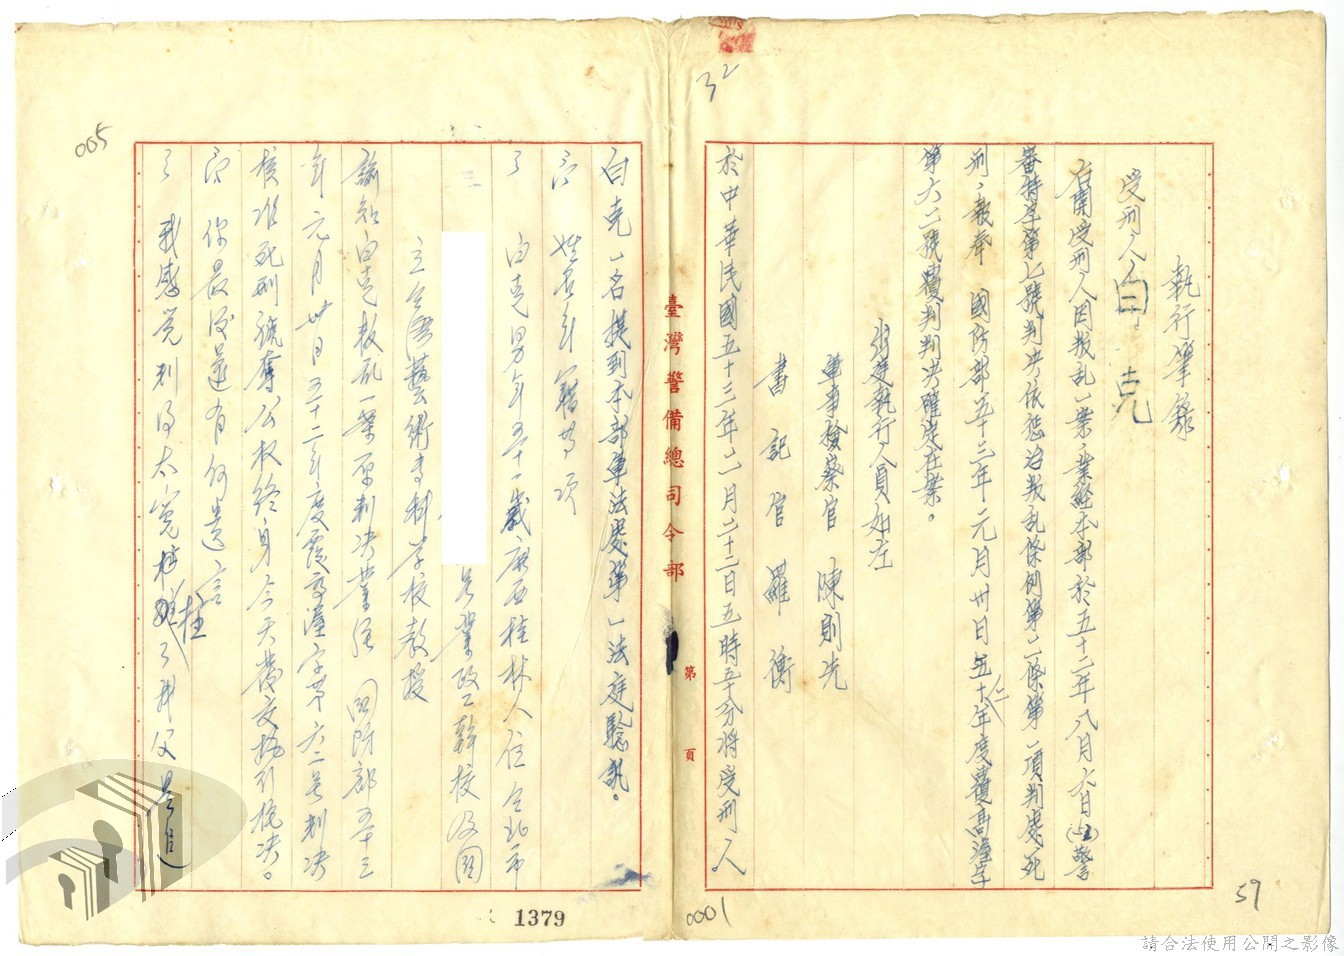 32
執行筆錄
受刑人白克
右開受刑人因叛乱一案業經本部於五十二年八月九日(52)警
審特字第七號判決依惩治叛乱條例第二條第一項判處死
刑,報奉 國防部五十三年元月卅日五十二年度覆高澄字
第六二號覆判判決確定在案。
茲建執行人員如左
軍事檢察官 陳則先
書記官 羅衡
於中華民國五十三年二月二十二日五時五十分將受刑人
臺灣警備總司令部
第 頁
白克一名提到本部軍法處第一法庭騐訊。
問 姓名年籍等項
白克男年五十一歲廣西桂林人住台北市
号業政工幹校及國
立台灣藝術專科學校教授
諭知白克叛乱一案原判決業經 國防部五十三
年元月卅日五十二年度覆高澄字第六二号判決
核准死刑褫奪公权終身今天發交执行槍決。
問 你最後還有何遺言
我感觉判得太冤枉了我父是
005
1379
0001
59
請合法使用公開之影像